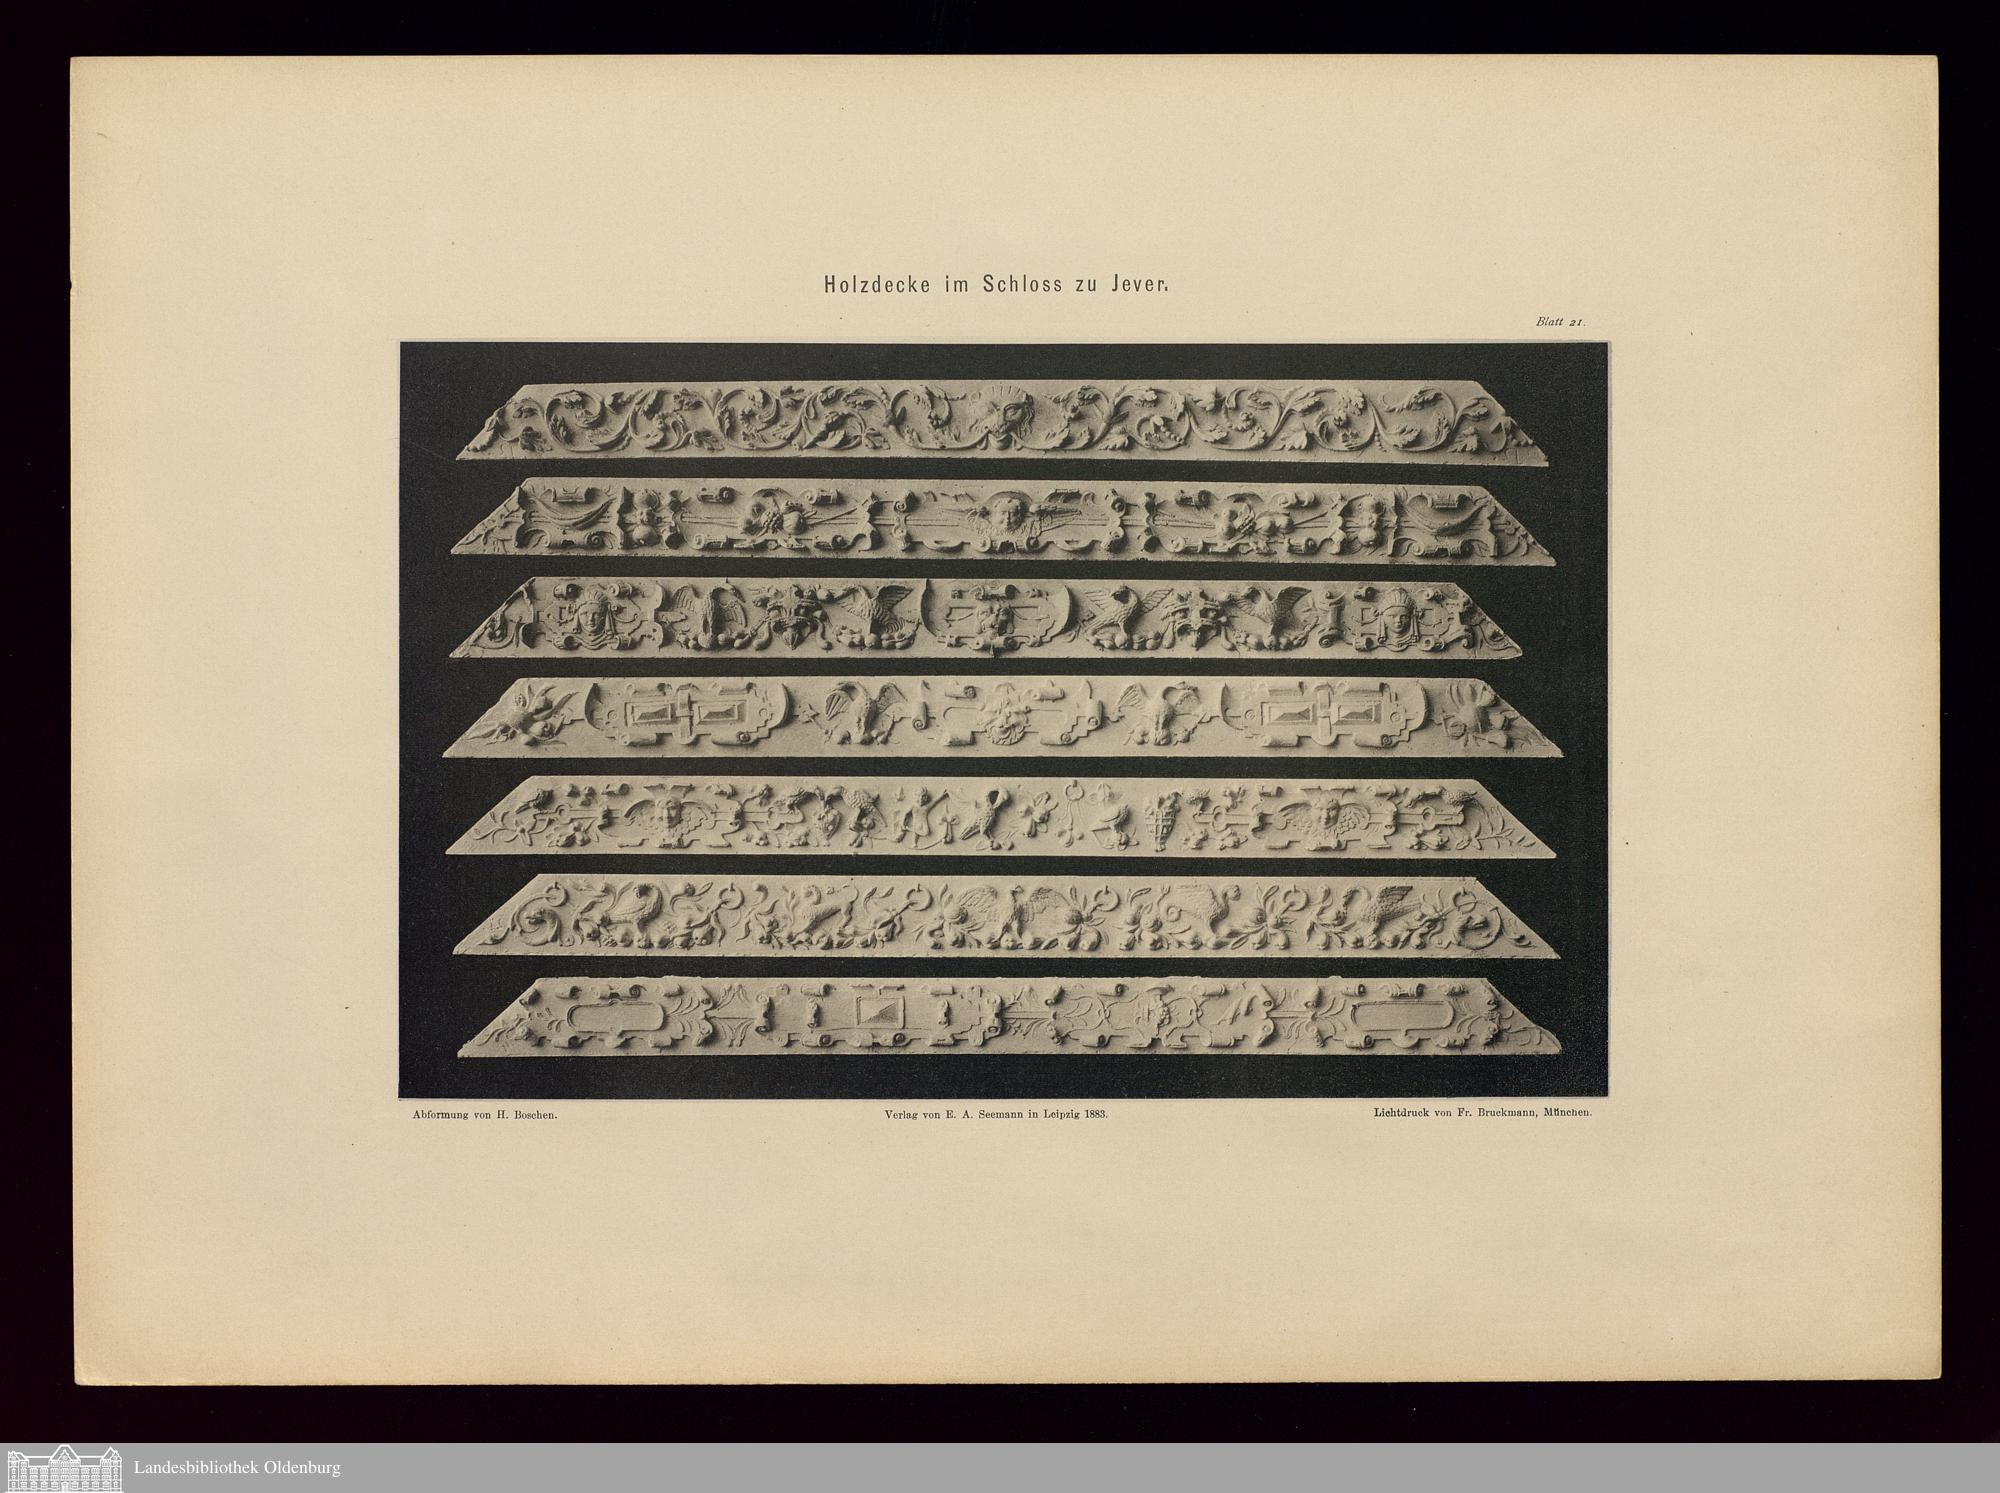 Holzdecke im Schloss zu Jever.
Blatt 21.
Abformung von H. Boschen.
Verlag von E. A. Seemann in Leipzig 1883.
Lichtdruck von Fr. Bruckmann, München.
Landesbibliothek Oldenburg